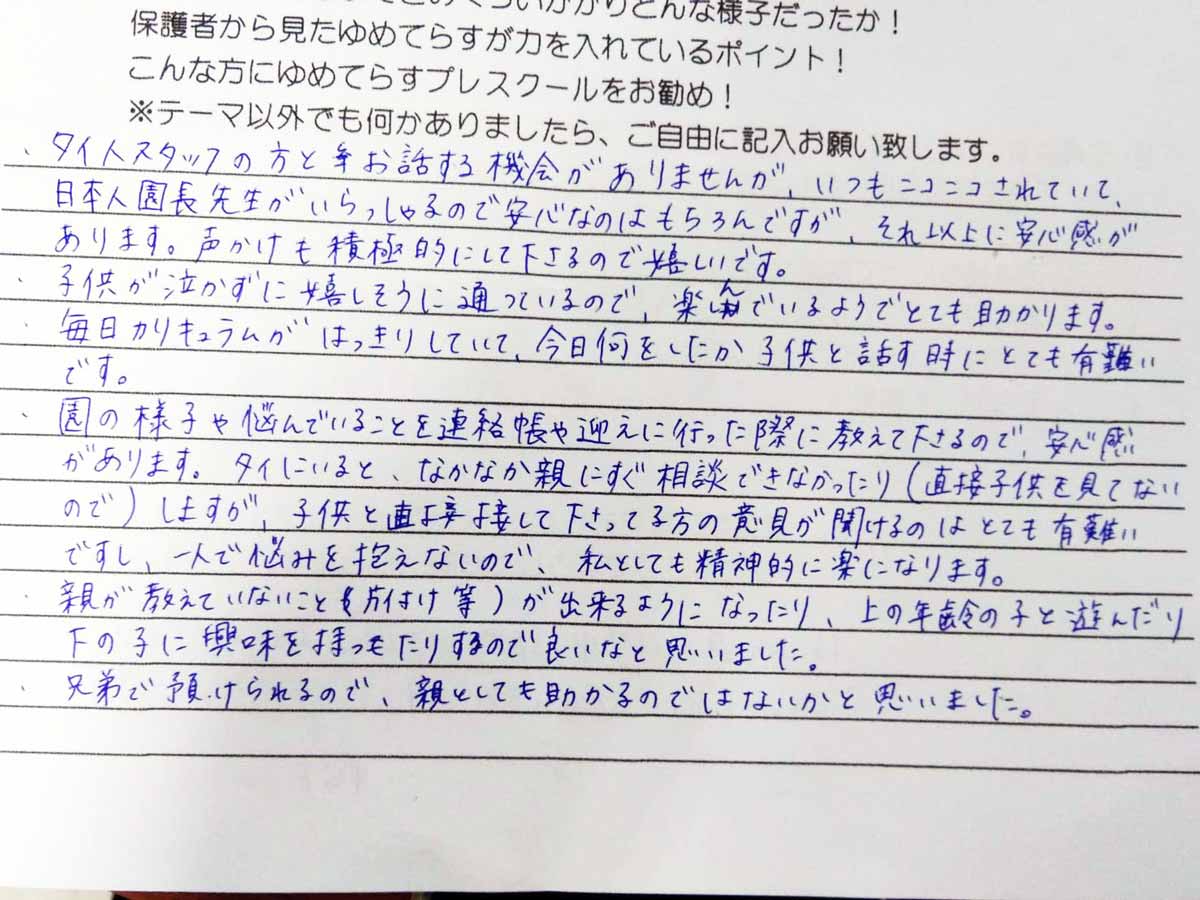 どんな様子だったか！
保護者から見たゆめてらすが力を入れているポイント！
こんな方にゆめてらすプレスクールをお勧め！
※テーマ以外でも何かありましたら、ご自由に記入お願い致します。
・タイ人スタッフの方とお話する機会がありませんが、いつもニコニコされていて、
日本人園長先生がいらっしゃるので安心なのはもちろんですが、それ以上に安心感が
あります。声かけも積極的にして下さるので嬉しいです。
・子供が泣かずに嬉しそうに通っているので、楽しんでいるようでとても助かります。
・毎日カリキュラムがはっきりしていて、今日何をしたか子供と話す時にとても有難い
です。
・園の様子や悩んでいることを連絡帳や迎えに行った際に教えて下さるので、安心感
があります。タイにいると、なかなか親にすぐ相談できなかったり(直接子供を見てない
ので)しますが、子供と直接接して下さってる方の意見が聞けるのはとても有難い
ですし、一人で悩みを抱えないので、私としても精神的に楽になります。
・親が教えていないこと(片付け等)が出来るようになったり、上の年齢の子と遊んだり
下の子に興味を持ったりするので良いなと思いました。
・兄弟で預けられるので、親としても助かるのではないかと思いました。